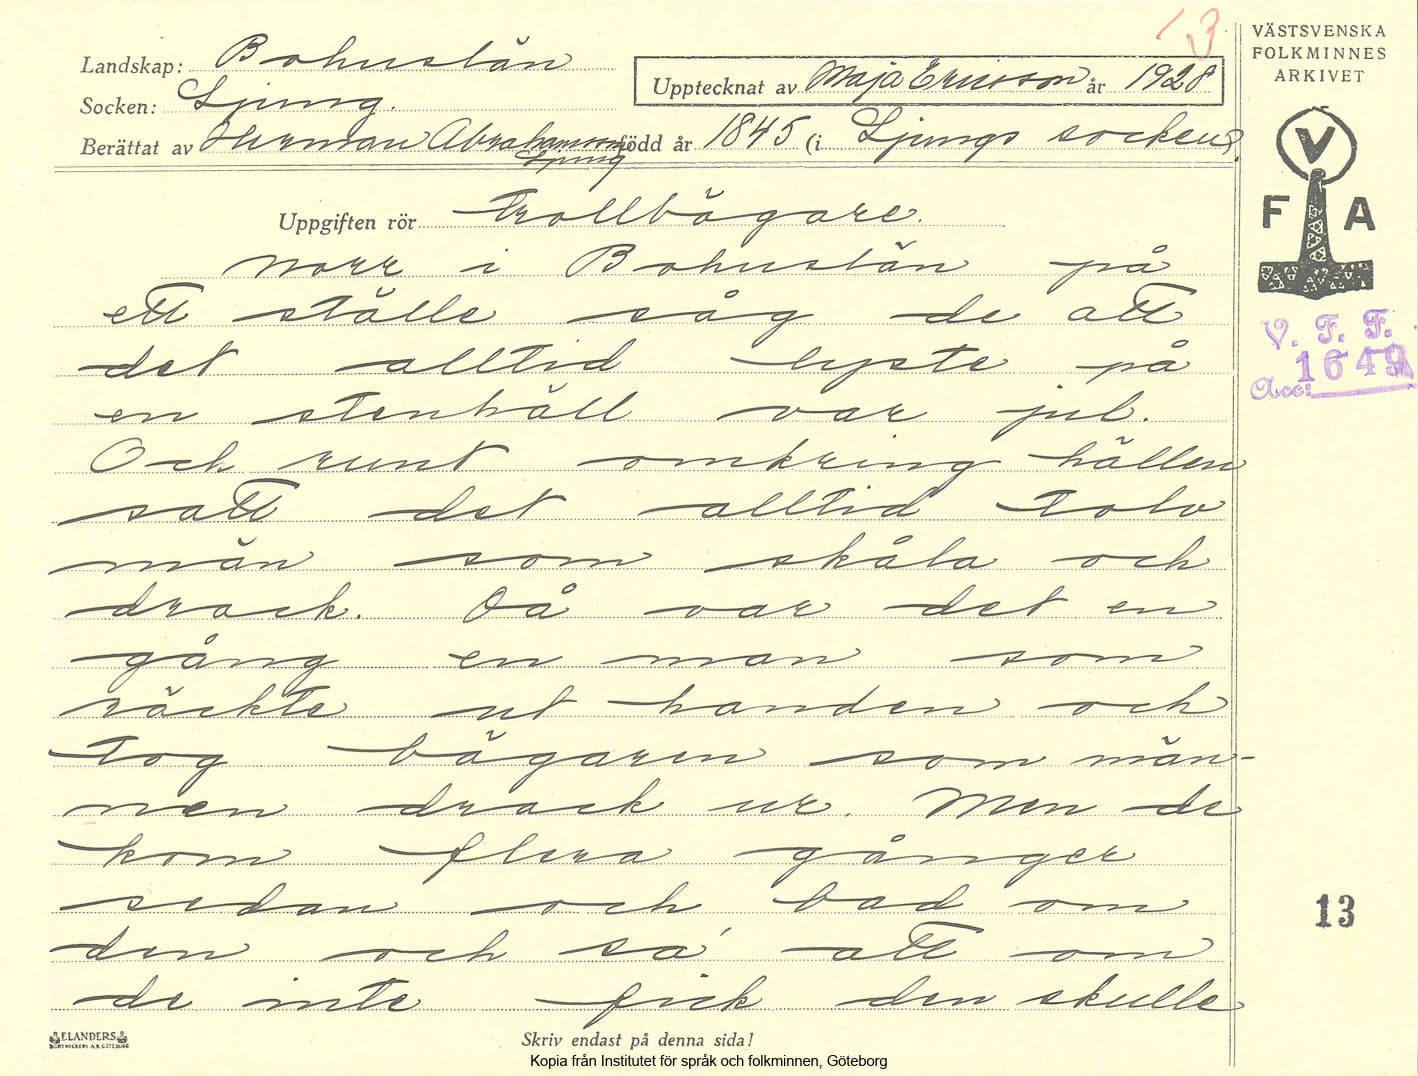 13
VÄSTSVENSKA
FOLKMINNES
ARKIVET
Landskap: Bohuslän
Socken: Ljung.
Upptecknat av Maja Ericsson år 1928
Berättat av Herman Abrahamsson född år 1845 (i Ljungs socken).
Ljung
V
F A
Uppgiften rör Trollbägare.
Norr i Bohuslän på
ett ställe såg de att
det alltid lyste på
en stenhäll var jul.
Och runt omkring hällen
satt det alltid tolv
män som skåla och
drack. Då var det en
gång en man som
räckte ut handen och
tog bägaren som män-
nen drack ur. Men de
kom flera gånger
sedan och bad om
den och sa' att om
de inte fick den skulle
V. F. F.
1649
Acc:
13
ELANDERS
Skriv endast på denna sida!
Kopia från Institutet för språk och folkminnen, Göteborg